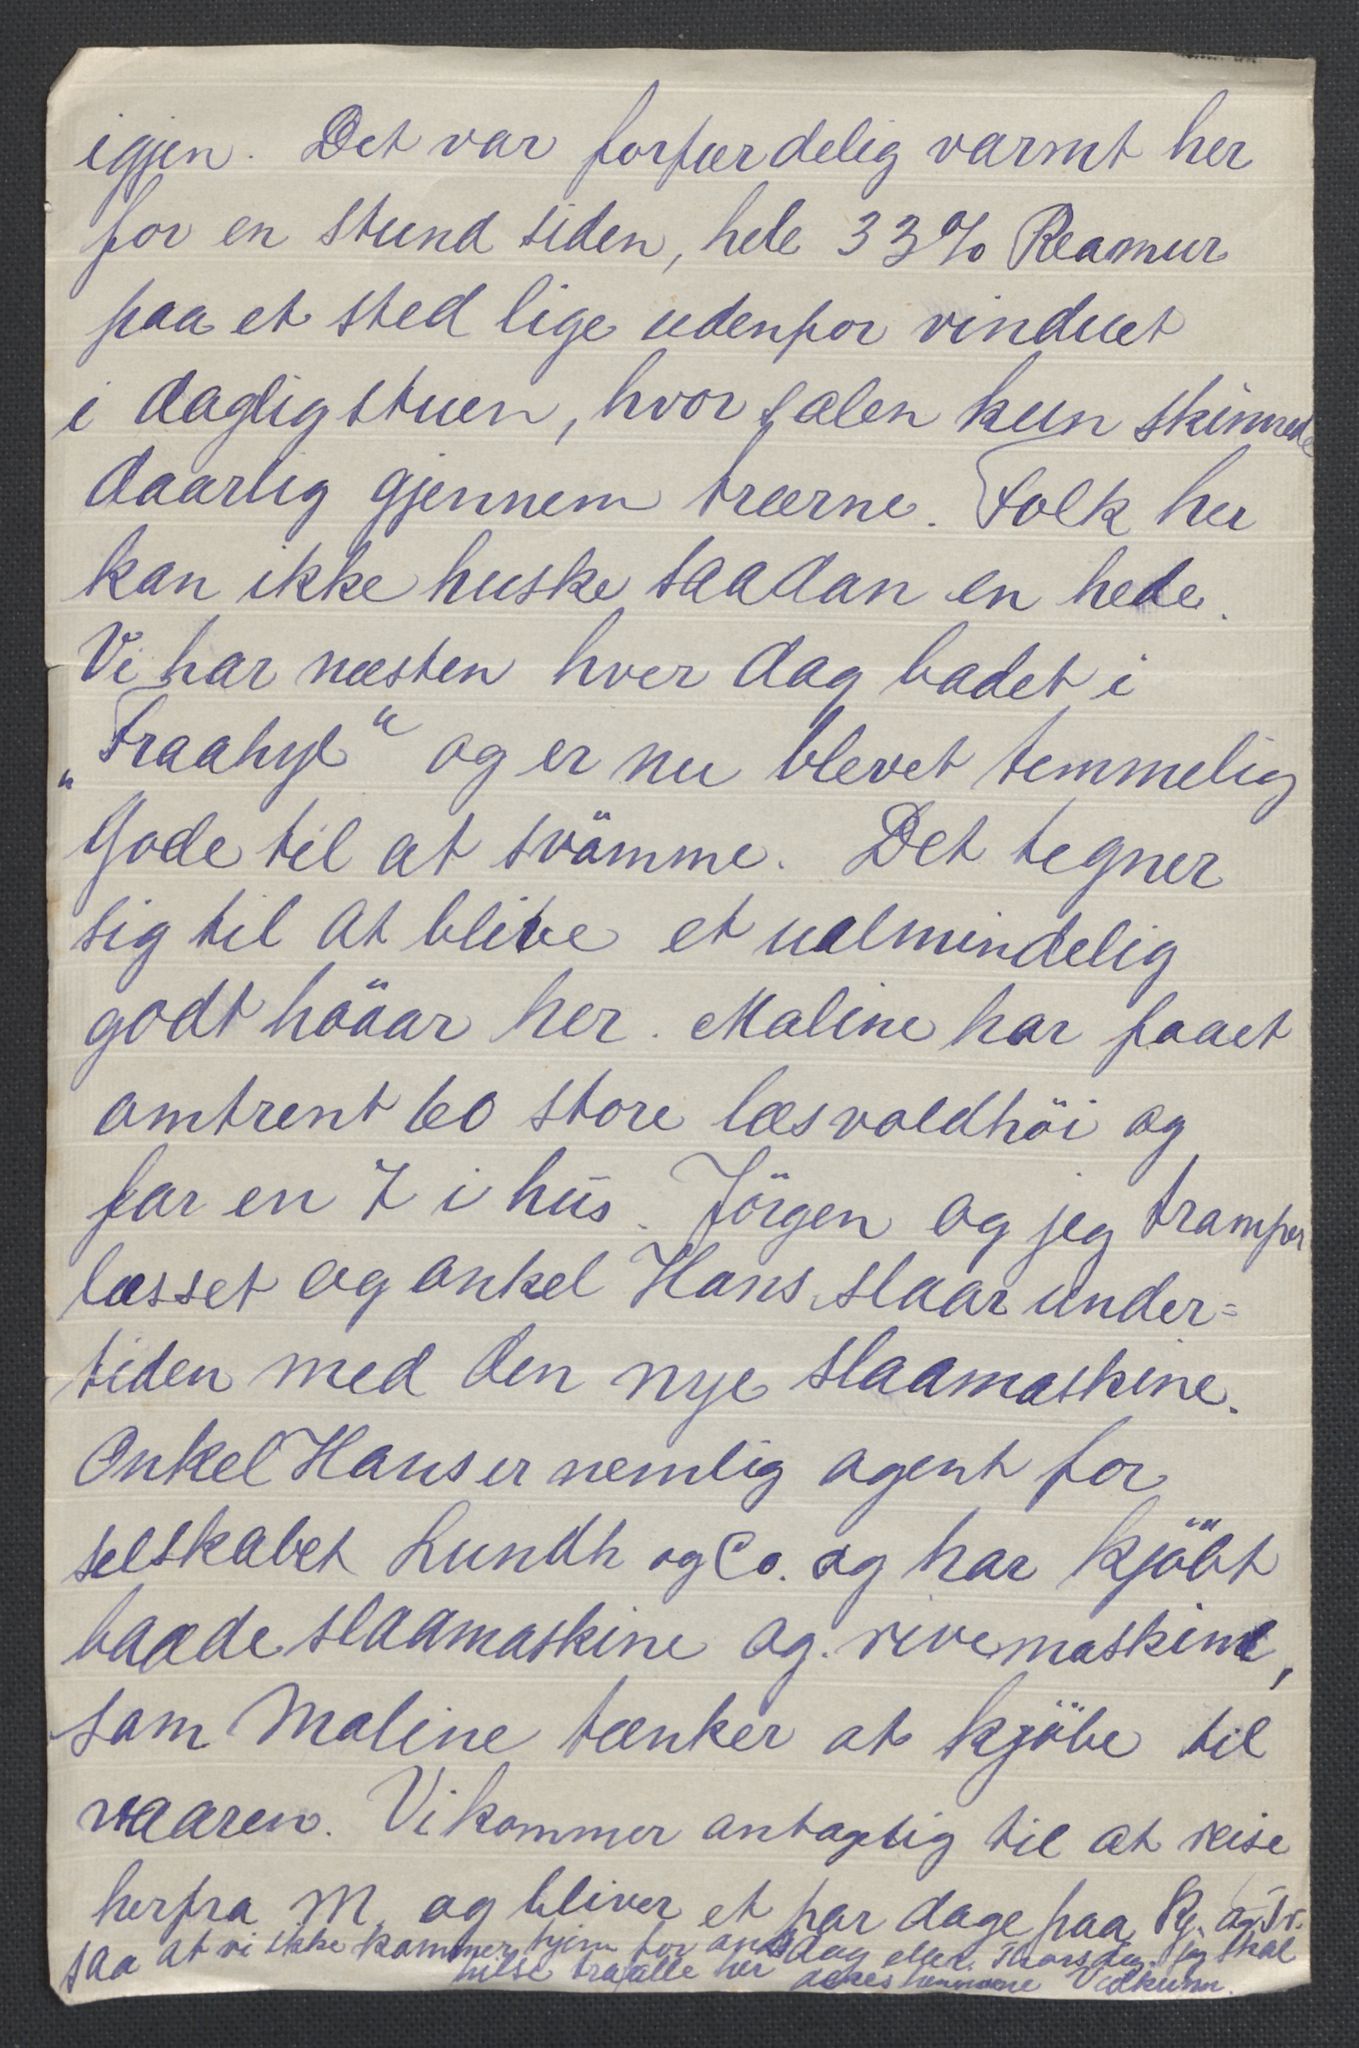 igjen. Det var forfærdelig varmt her
for en stund siden, hele 33% Reamur
paa et sted lige udenfor vinduet
i dagligstuen, hvor solen kun skinnede
daarlig gjennem trærne. Folk her
kan ikke huske saadan en hede.
Vi har næsten hver dag badet i
„Fraahyl“ og er nu blevet temmelig
gode til at svömme. Det tegner
sig til at blive et ualmindelig
godt höaar her. Maline har faaet
omtrent 60 store læs voldhöi og
far en 7 i hus. Jörgen og jeg tramper
læsset og onkel Hans slaar under=
tiden med den nye slaamaskine.
Onkel Hans er nemlig agent for
selskabet Lundh og Co. og har kjöbt
baade slaamaskine og rivemaskine,
som Maline tænker at kjöbe til
vaaren. Vi kommer antagelig til at reise
herfra M. og bliver et par dage paa
saa at vi ikke kommer hjem för onsdag eller Thorsdag. Jeg skal
hilse fra alle her Vidkunn.